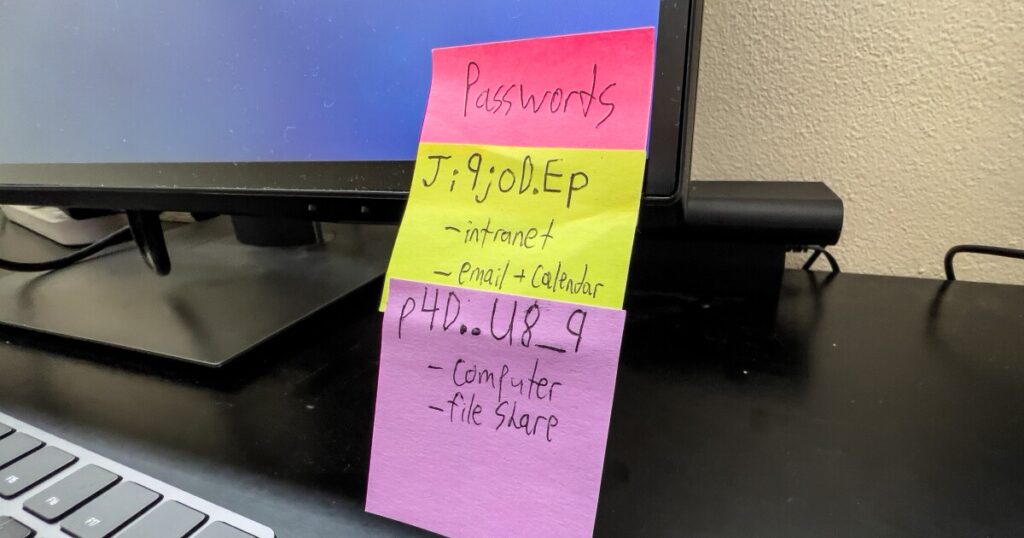 Passwords
Ji9joD.Ep
-intranet
-email + Calendar
p4D..U8_9
-Computer
-file Share